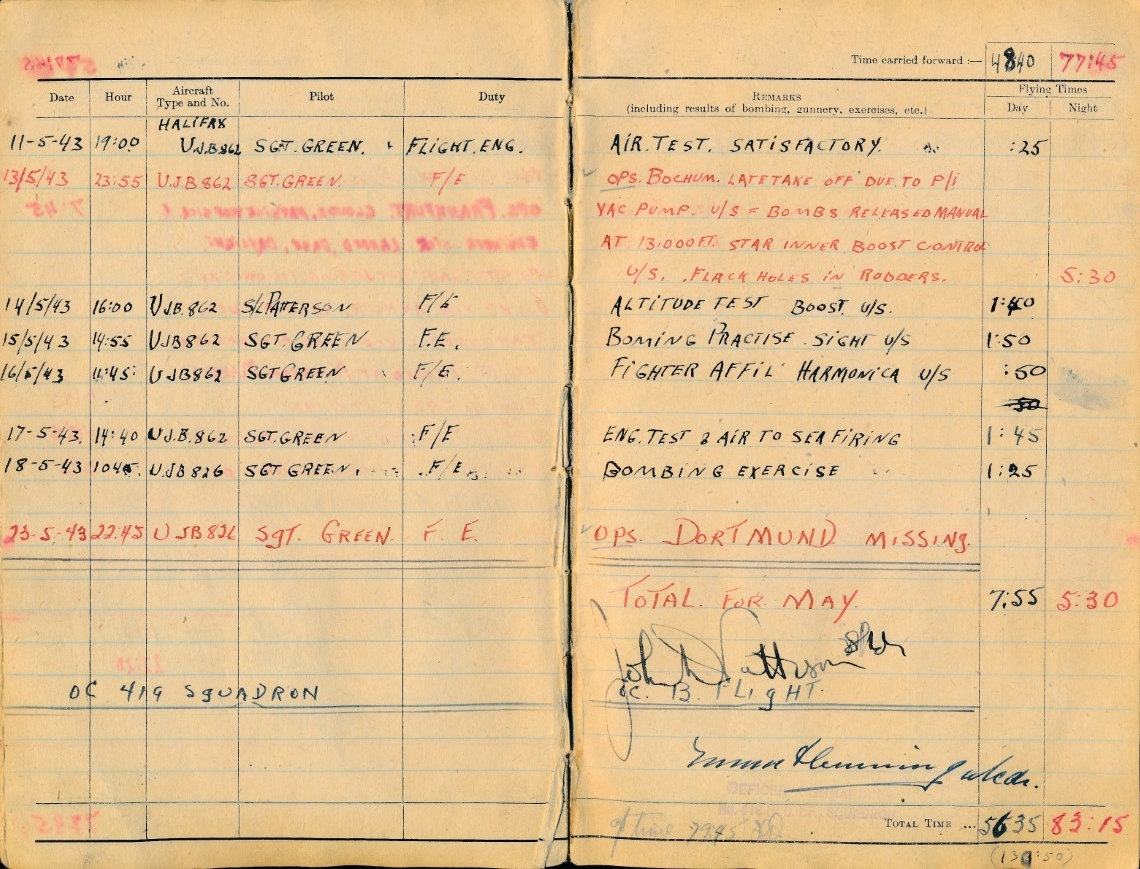 Time carried forward :— 4840 77:45
Date Hour Aircraft Type and No. Pilot Duty REMARKS (including results of bombing, gunnery, exercises, etc.) Flying Times Day Night
HALIFAX
11-5-43 19:00 U.J.B.862 SGT. GREEN. FLIGHT. ENG. AIR. TEST. SATISFACTORY. :25
13/5/43 23:55 U.J.B 862 SGT. GREEN. F/E OPS. BOCHUM. LATE TAKE OFF DUE TO P/I
VAC PUMP. U/S = BOMBS RELEASED MANUAL
AT 13.000 FT. STAR INNER BOOST CONTROL
U/S. .FLACK HOLES IN RODDERS. 5:30
14/5/43 16:00 U.J.B. 862 S/L PATTERSON F/E ALTITUDE TEST BOOST U/S. 1:40
15/5/43 14:55 U.J.B 862 SGT. GREEN F.E. BOMING PRACTISE. SIGHT U/S 1:50
16/5/43 11:45: U.J.B 862 SGT GREEN F/E. FIGHTER AFFIL' HARMONICA U/S :50
50
17-5-43. 14:40 U.J.B. 862 SGT. GREEN F/E ENG. TEST & AIR TO SEA FIRING 1:45
18-5-43 1045 U.J.B 826 SGT GREEN. F/E BOMBING EXERCISE 1:25
23-5-43 22:45 U JB 826 SGT. GREEN. F. E. OPS. DORTMUND MISSING.
TOTAL. FOR. MAY. 7:55 5:30
John Patterson S/Ldr
OC 419 SQUADRON OC. B. FLIGHT.
Fleming W/Cdr.
TOTAL TIME ... 5635 83.15